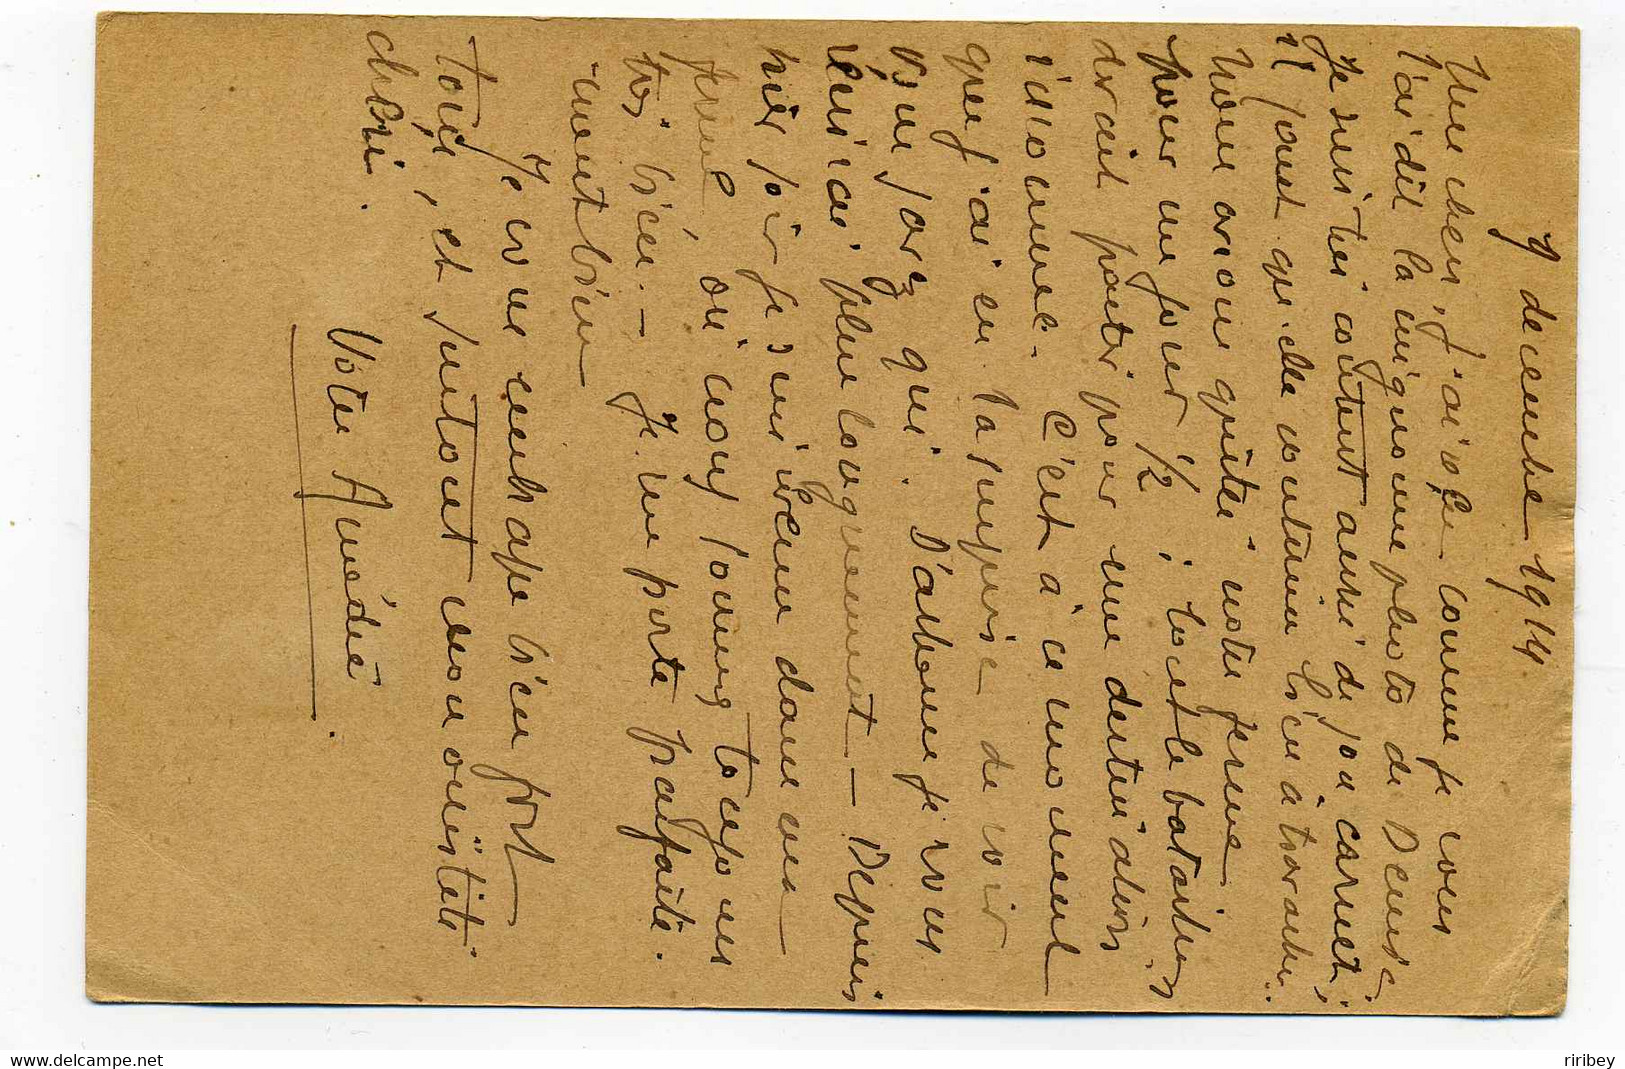 9 decembre 1914
Mes chers, j'ai reçu comme je vous
l'ai dit la mignonne photo de Denise,
Je suis très content aussi de son carnet;
il faut qu'elle continue bien à travailler.
Nous avons quitté notre ferme
pour un jour 1/2; tout le bataillon
devait partir pour une destination
inconnue. C'est à ce moment
que j'ai eu la surprise de voir
qui. D'ailleurs je vous
écrirai plus longuement – Depuis
hier soir je suis revenu dans ma
ferme, où nous sommes toujours
très bien – Je me porte parfaite-
-ment bien
Je vous embrasse bien fort
tous, et surtout mon
chéri.
Votre Amédée
delcampe.net
riribey